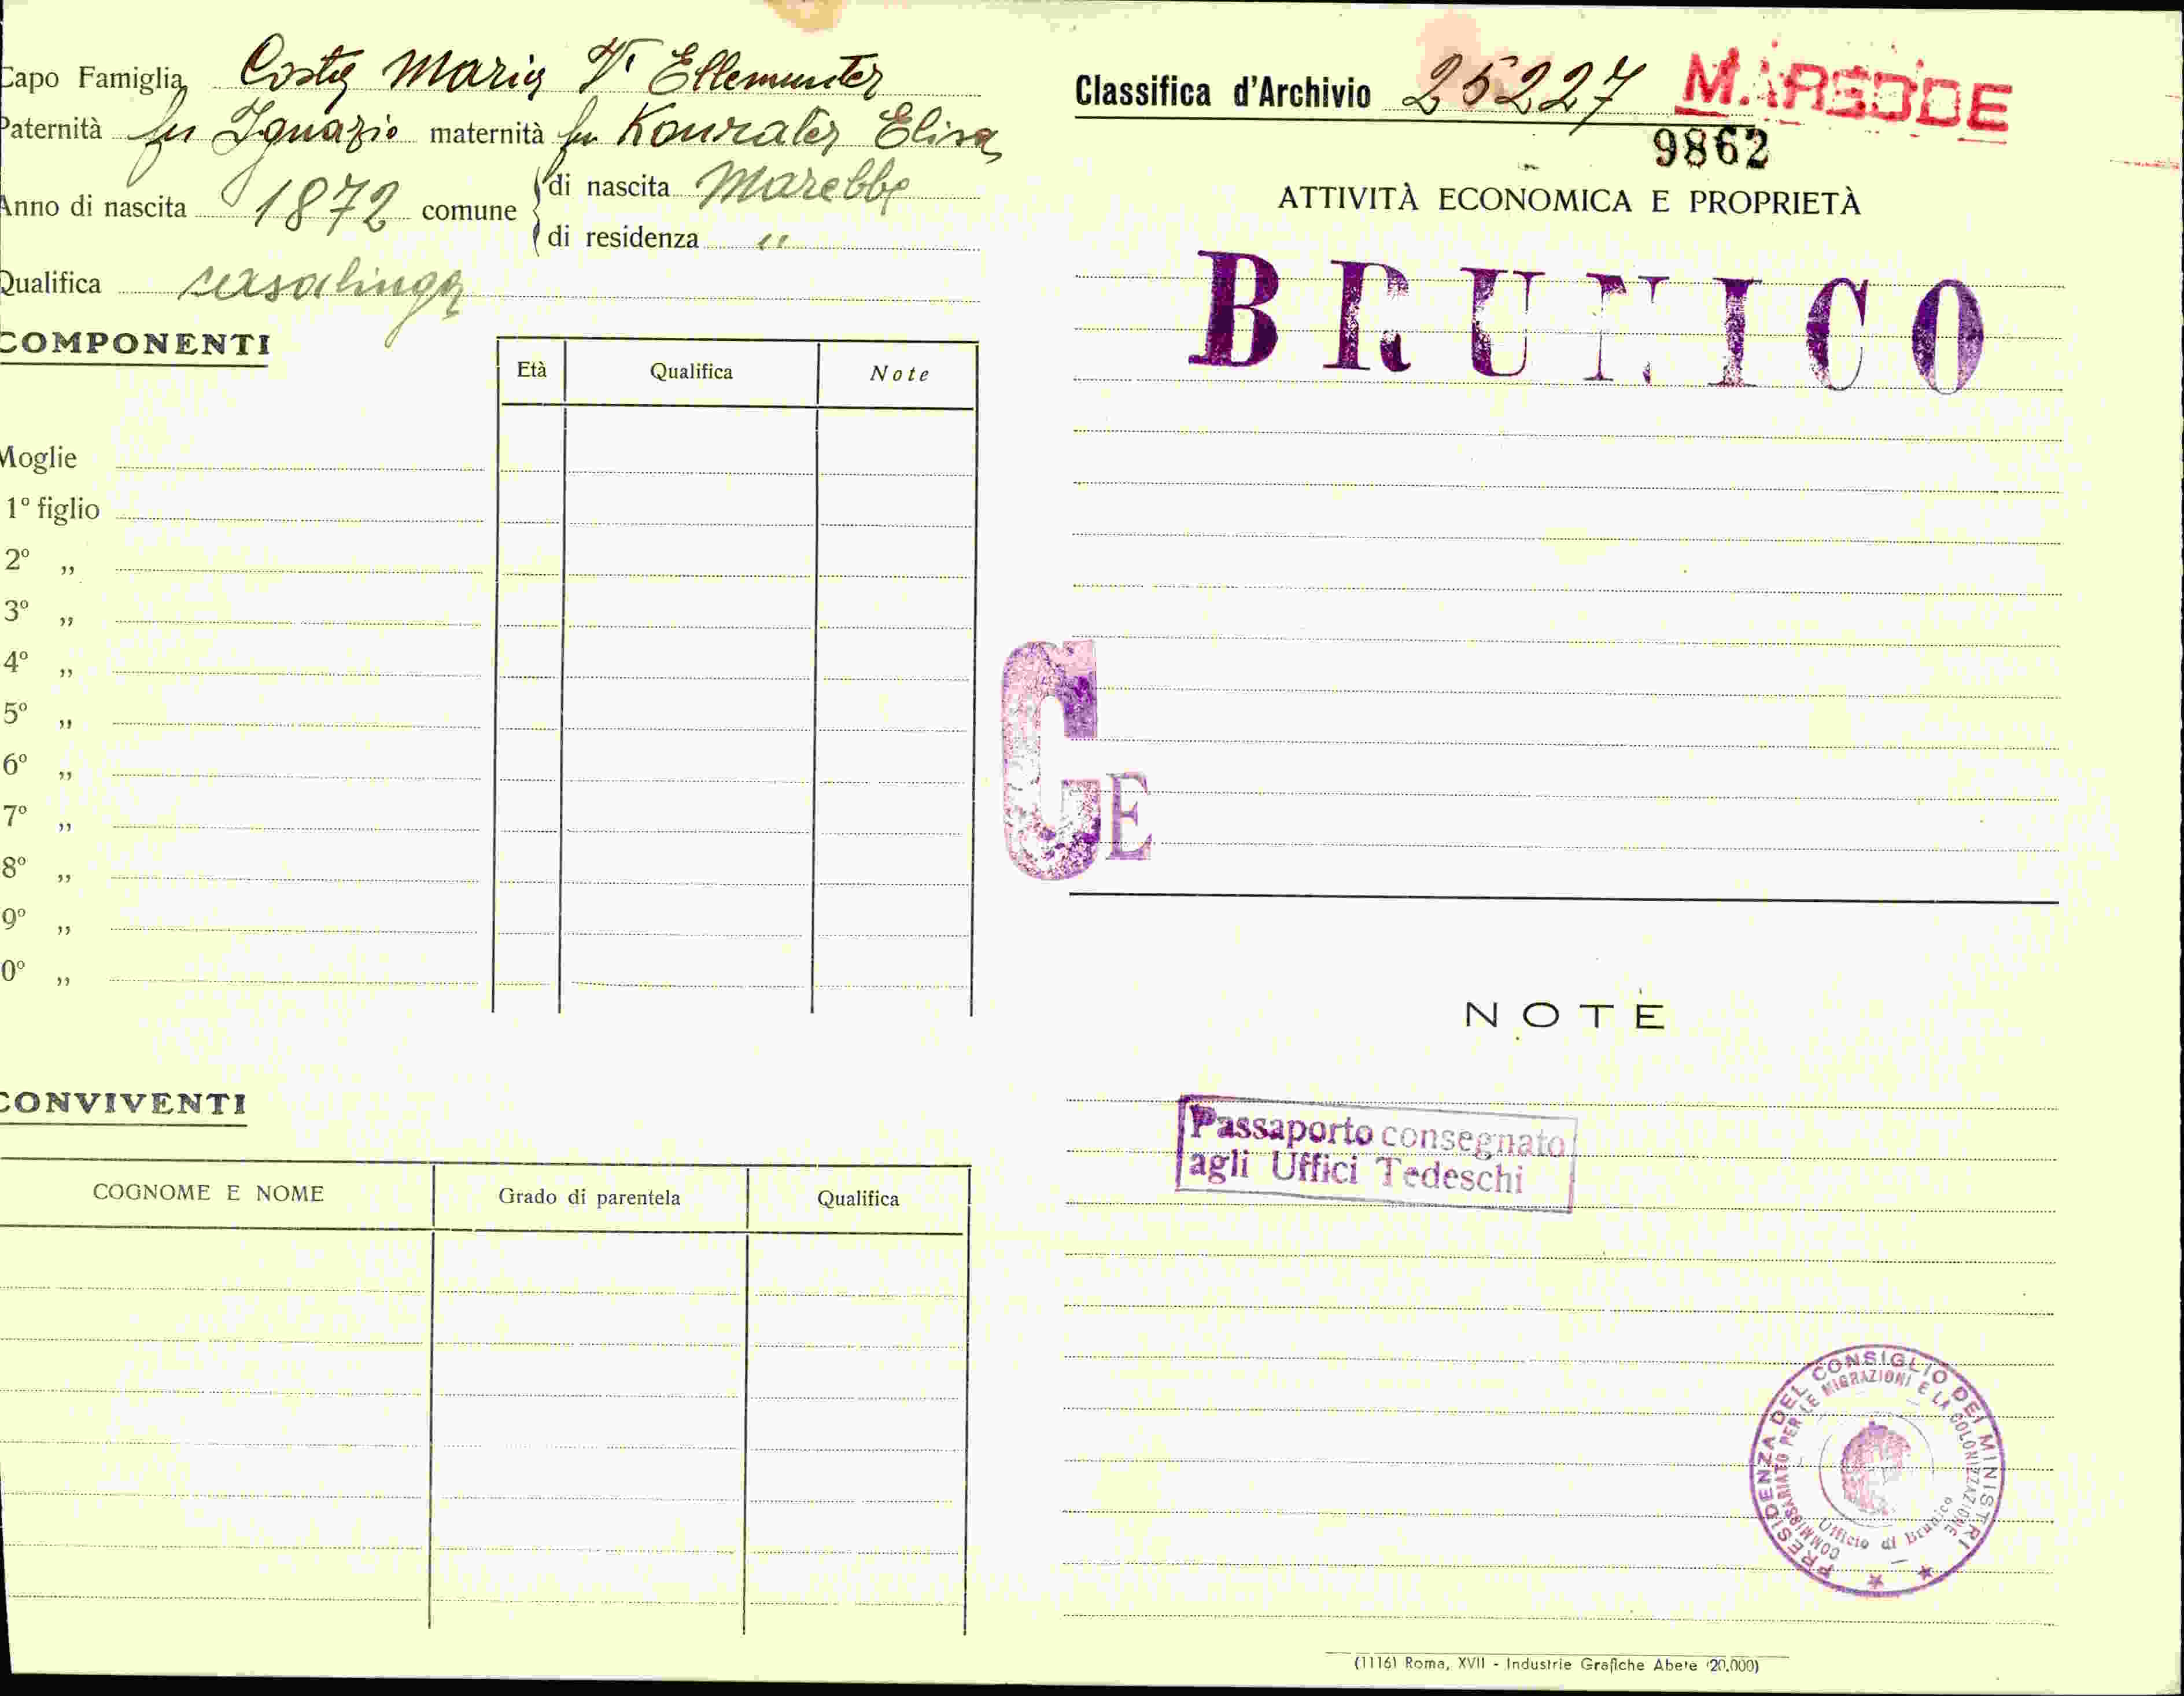 Capo Famiglia Costa Maria Vª Ellemunter
Paternità fu Ignazio maternità fu Konrater Elisa
Anno di nascita 1872 comune
di nascita Marebbe
di residenza "
Qualifica casalinga
COMPONENTI
Età Qualifica Note
Moglie
1º figlio
2º „
3º „
4º „
5º „
6º „
7º „
8º „
9º „
0º „
CONVIVENTI
COGNOME E NOME Grado di parentela Qualifica
Classifica d'Archivio 25227 MAREBBE
9862
ATTIVITÀ ECONOMICA E PROPRIETÀ
BRUNICO
G E
NOTE
Passaporto consegnato
agli Uffici Tedeschi
PRESIDENZA DEL CONSIGLIO DEI MINISTRI
COMMISSARIATO PER LE MIGRAZIONI E LA COLONIZZAZIONE
Ufficio di Brunico
(1116) Roma, XVII - Industrie Grafiche Abete (20.000)